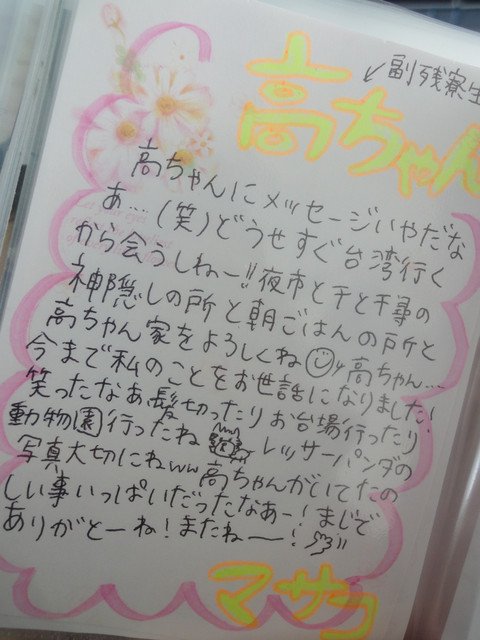 ↙副残寮生
高ちゃん
高ちゃんにメッセージいやだな
あ…(笑)どうせすぐ台湾行く
から会うしねー!!夜市と千と千尋の
神隠しの所と朝ごはんの所と
高ちゃん家をよろしくね 高ちゃん…
今まで私のことをお世話になりました!
笑ったなあ髪切ったりお台場行ったり
動物園行ったね レッサーパンダの
写真大切にねww高ちゃんがいてたの
しい事いっぱいだったなあー!まじで
ありがとーね!またねー!
マサコ